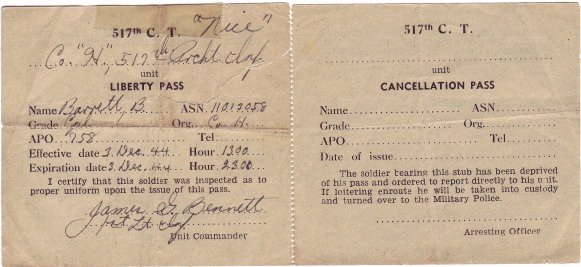 517th C. T. "Nice"
Co. "H", 517th Prcht Inf
unit
LIBERTY PASS
Name Barrett, B. ASN. 11013058
Grade Org. Co. H.
APO 758 Tel
Effective date 3 Dec. 44 Hour 1300
Expiration date 3. Dec. 44 Hour 2300
I certify that this soldier was inspected as to
proper uniform upon the issue of this pass.
James G. Bennett
1st Lt Inf
Unit Commander
517th C. T.
unit
CANCELLATION PASS
Name ASN.
Grade Org.
APO Tel
Date of issue
The soldier bearing this stub has been deprived
of his pass and ordered to report directly to his unit.
If loitering enroute he will be taken into custody
and turned over to the Military Police.
Arresting Officer